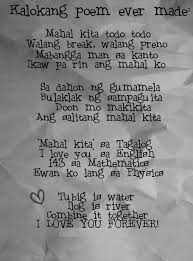 Kalokang poem ever made:
Mahal kita todo todo
Walang break, walang preno
Mabangga man sa kanto
Ikaw pa rin ang mahal ko
Sa dahon ng gumamela
Bulaklak ng sampaguita
Doon mo makikita
Ang salitang mahal kita
'Mahal kita' sa Tagalog
I love you sa English
143 sa Mathematics
Ewan ko lang sa Physics
Tubig is water
Ilog is river
Combine it together
I LOVE YOU FOREVER!